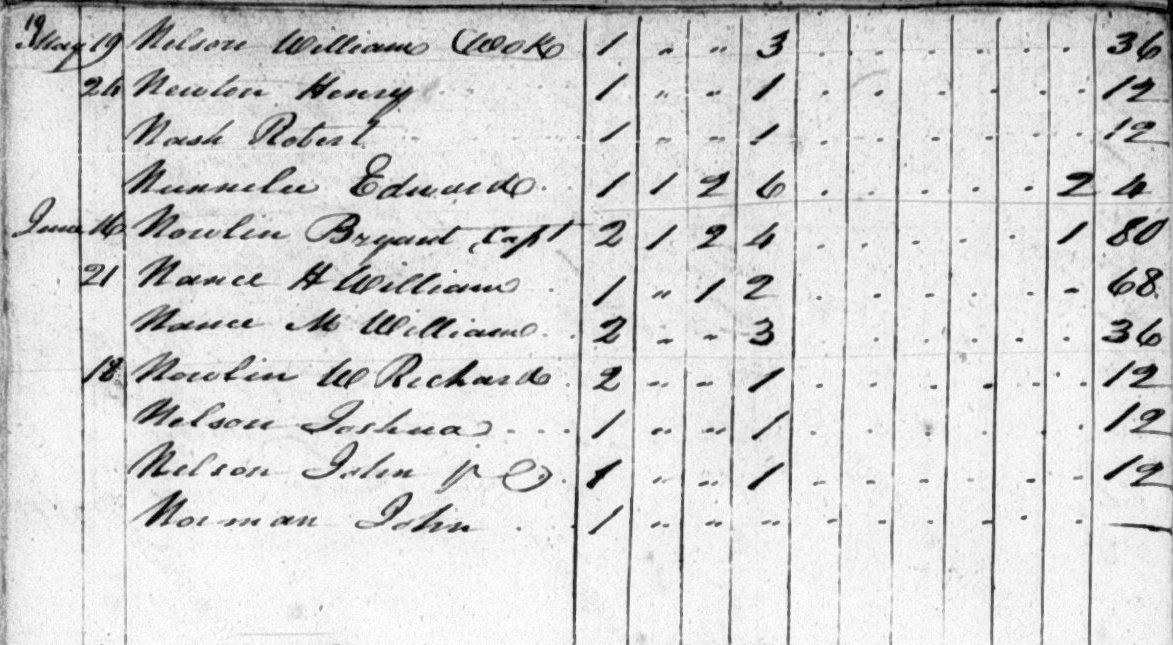 19
May 19 Nelson William 1 " " 3 . . . . . . 36
24 Newton Henry 1 " " 1 . . . . . . 12
Nash Robert 1 " " 1 . . . . . . 12
Nunnelee Edward 1 1 2 6 . . . . . 2 4
June 16 Nowlin Bryant Capt 2 1 2 4 . . . . . 1 80
21 Nance H William 1 " 1 2 . . . . . . 68
Nance M William 2 " " 3 . . . . . . 36
18 Nowlin W Richard 2 " " 1 . . . . . . 12
Nelson Joshua 1 " " 1 . . . . . . 12
Nelson John 1 " " 1 . . . . . . 12
Norman John 1 " " " . . . . . . —